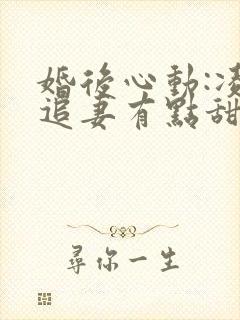 婚後心動:凌
追妻有點甜
尋你一生